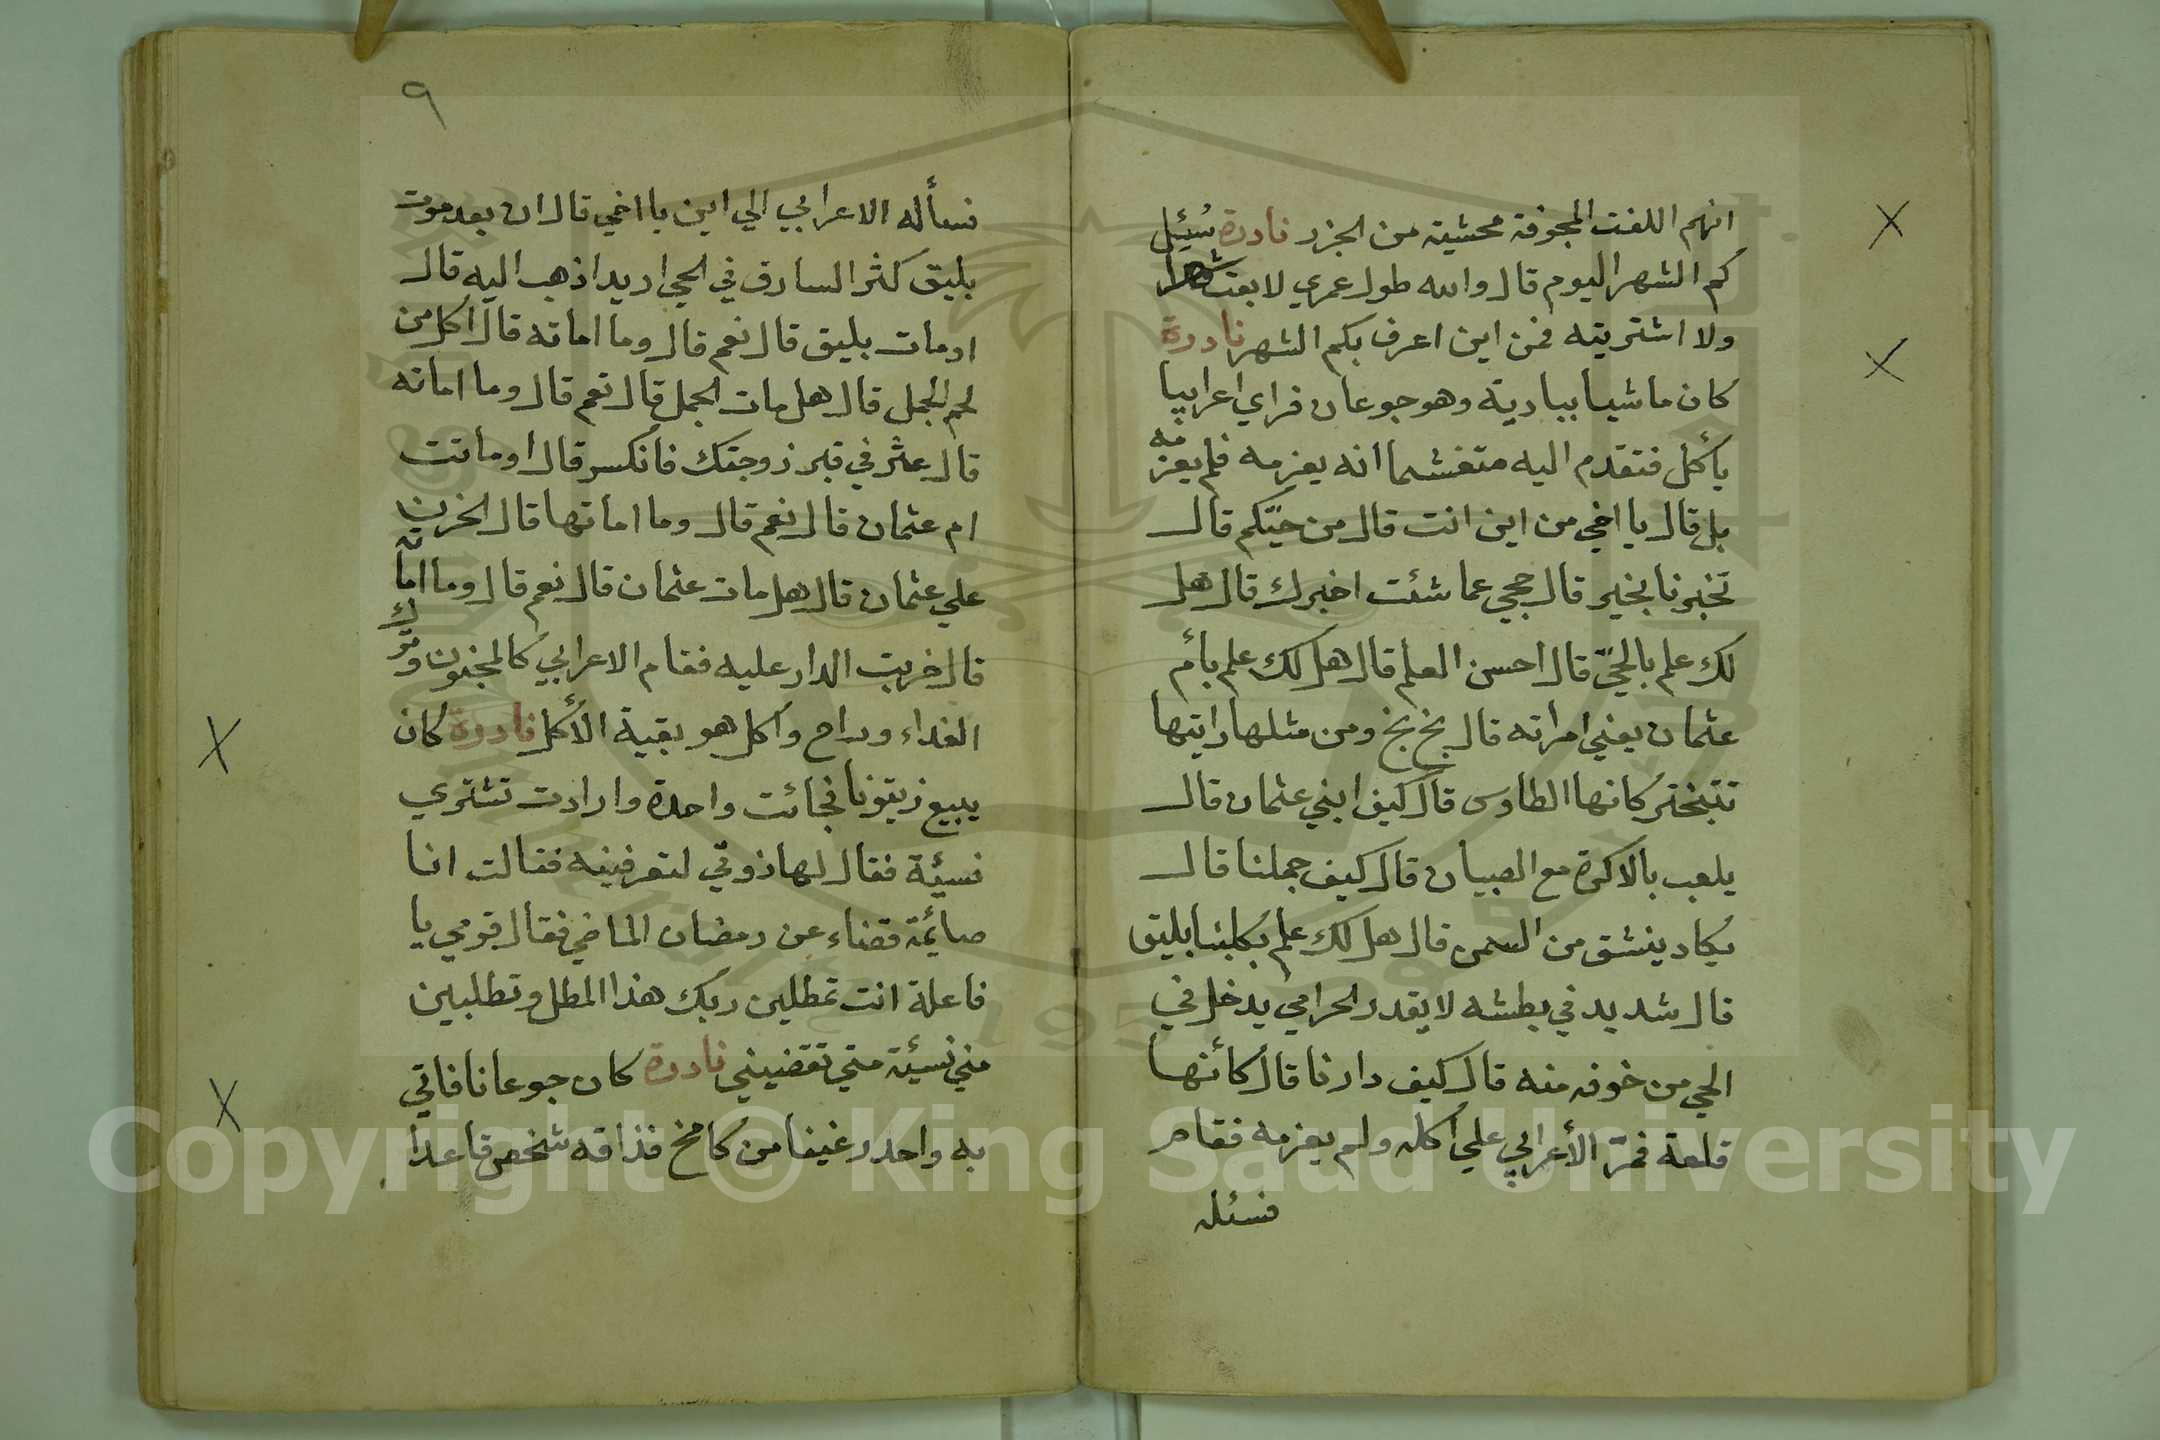 انهم اللفت المجوفة محشية من الجزر نادرة سُئِل
كم الشهر اليوم قال والله طول عمري لا بعت شهرا
ولا اشتريته فمن اين اعرف بكم الشهر نادرة
كان ماشيا ببادية وهو جوعان فراي اعرابيا
يأكل فتقدم اليه متغشما انه يعزمه فلم يعزمه
بل قال يا اخي من اين انت قال من حيّكم قال
تخبرنا بخير قال جحي عما شئت اخبرك قال هل
لك علم بالحيّ قال احسن العلم قال هل لك علم بأم
عثمان يعني امرأته قال بخ بخ ومن مثلها رايتها
تتبختر كانها الطاوس قال كيف ابني عثمان قال
يلعب بالاكرة مع الصبيان قال كيف جملنا قال
يكاد ينشق من السمن قال هل لك علم بكلبنا بليق
قال شديد في بطشه لا يقدر الحرامي يدخل في
الحي من خوفه منه قال كيف دارنا قال كأنها
قلعة فمرّ الأعرابي علي اكله ولم يعزمه فقام
فسئله
٩
فسأله الاعرابي الي اين يا اخي قال ان بعد موت
بليق كثر السارق في الحي اريد اذهب اليه قال
اومات بليق قال نعم قال وما اماته قال اكل من
لحم الجمل قال هل مات الجمل قال نعم قال وما اماته
قال عثر في قبر زوجتك فانكسر قال اوماتت
ام عثمان قال نعم قال وما اماتها قال الحزن
علي عثمان قال هل مات عثمان قال نعم قال وما اماته
قال خربت الدار عليه فقام الاعرابي كالمجنون وترك
الغداء وراح واكل هو بقية الأكل نادرة كان
يبيع زيتونا فجائت واحدة وارادت تشتري
نسيئة فقال لها ذوقي لتعرفينه فقالت انا
صائمة قضاء عن رمضان الماضي فقال قومي يا
فاعلة انت تمطلين ربك هذا المطل وتطلبين
مني نسيئة متي تقضيني نادرة كان جوعانا فاتي
به واحد رغيفا من كامخ فذاقه شخص قاعدا
Copyright © King Saud University
1957